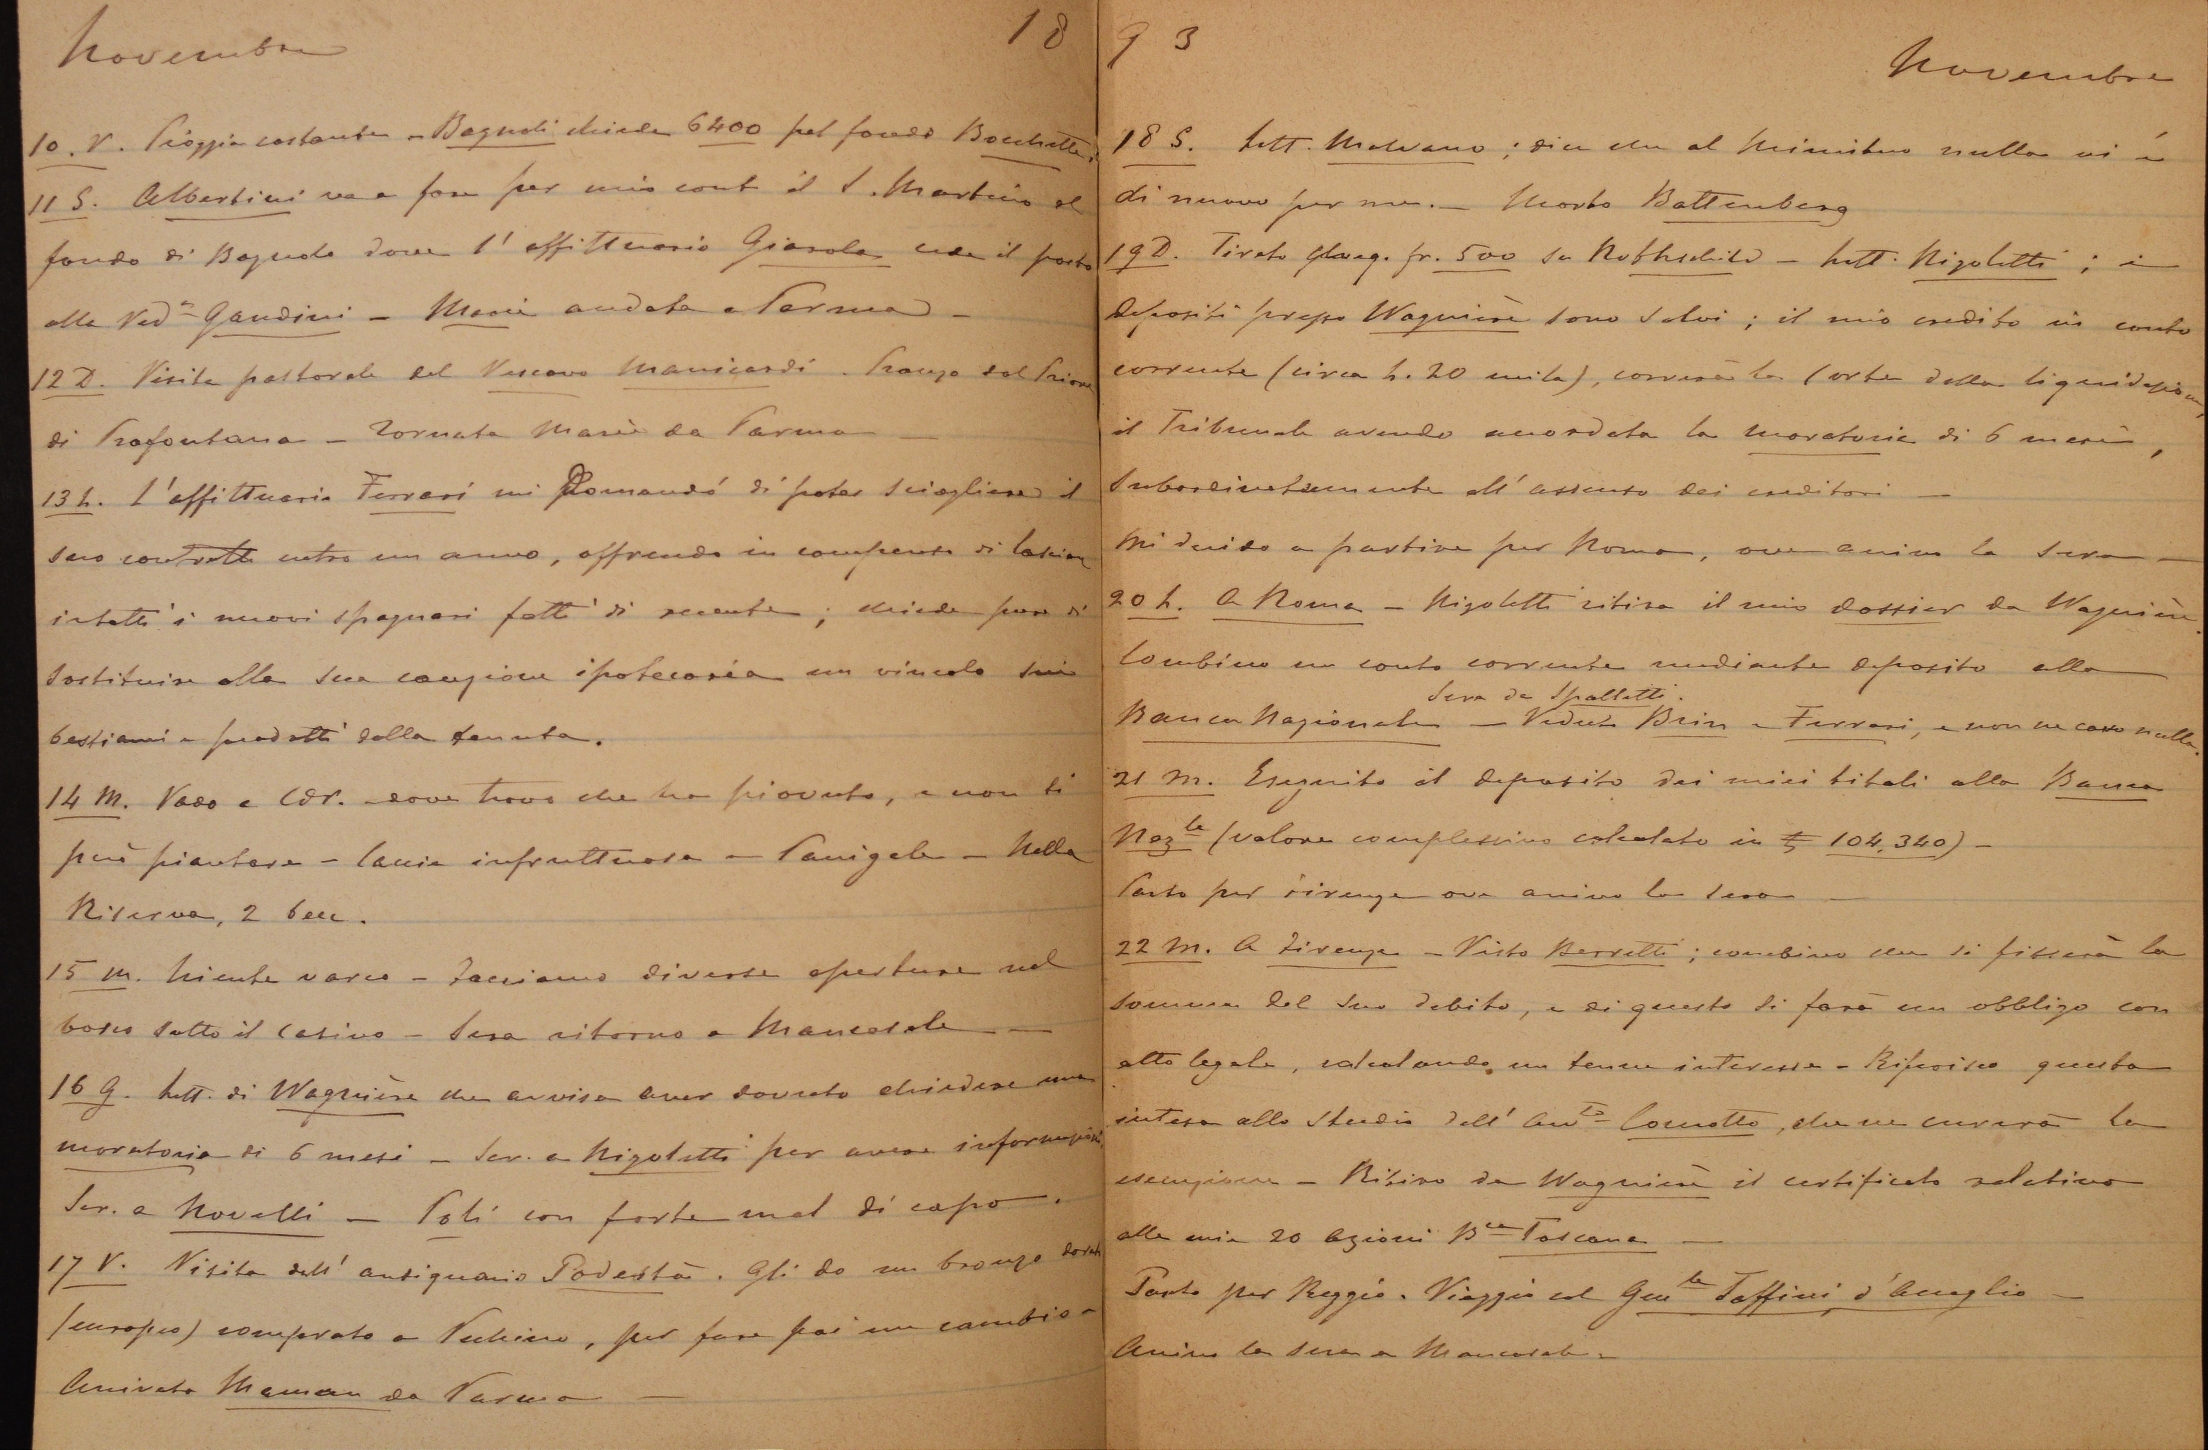 Novembre
18
10. V. Pioggia costante - Bagnoli chiede 6400 pel fondo Bocchetti.
11 S. Albertini va a fare per mio conto il S. Martino al
fondo di Bagnolo dove l'affittuario Giarola cede il posto
alla Ved.a Gandini - Marie andata a Parma -
12 D. Visita pastorale del Vescovo Manicardi. Pranzo dal Priore
di Prafontana - Tornata Marie da Parma -
13 L. L'affittuario Ferrari mi domandò di poter sciogliere il
suo contratto entro un anno, offrendo in compenso di lasciar
intatti i nuovi spagnari fatti di recente; chiede pure di
sostituire alla sua cauzione ipotecaria un vincolo sui
bestiami e prodotti della tenuta.
14 M. Vado a CdR. dove trovo che ha piovuto, e non si
può piantare - Caccia infruttuosa a Panigale - Nella
Riserva, 2 becc.
15 M. Niente varco - Facciamo diverse aperture nel
bosco sotto il casino - Sera ritorno a Mancasale -
16 G. Lett. di Wagnière che avvisa aver dovuto chiedere una
moratoria di 6 mesi - Scr. a Rigoletti per avere informazioni
Scr. a Novelli - Poli con forte mal di capo.
17 V. Visita dell'antiquario Podestà. Gli do un bronzo dorato
(europeo) comprato a Pechino, per fare poi un cambio -
Arrivata Maman da Parma -
93
Novembre
18 S. Lett. Malvano; dice che al Ministero nulla vi è
di nuovo per me. - Morto Battenberg
19 D. Tirato fr. 500 su Rothschild - Lett. Rigoletti; i
depositi presso Wagnière sono salvi; il mio credito in conto
corrente (circa L. 20 mila), correrà la sorte della liquidazione,
il Tribunale avendo accordata la moratoria di 6 mesi,
subordinatamente all'assenso dei creditori -
Mi decido a partire per Roma, ove arrivo la sera -
20 L. A Roma - Rigoletti ritira il mio dossier da Wagnière.
Combino un conto corrente mediante deposito alla
Sera da Spalletti.
Banca Nazionale - Veduti Brin e Ferrari, e non ne cavo nulla.
21 M. Eseguito il deposito dei miei titoli alla Banca
Naz.le (valore complessivo calcolato in £ 104.340) -
Parto per Firenze ove arrivo la sera -
22 M. A Firenze - Visto Berretti; combino che si fisserà la
somma del suo debito, e di questo si farà un obbligo con
atto legale, calcolando un tenue interesse - Riferisco questa
intesa allo studio dell'Avv.to Comotto, che ne curerà la
esecuzione - Ritiro da Wagnière il certificato relativo
alle mie 20 Azioni B.ca Toscana -
Parto per Reggio. Viaggio col Gen.le Taffini d'Acceglio -
Arrivo la sera a Mancasale -